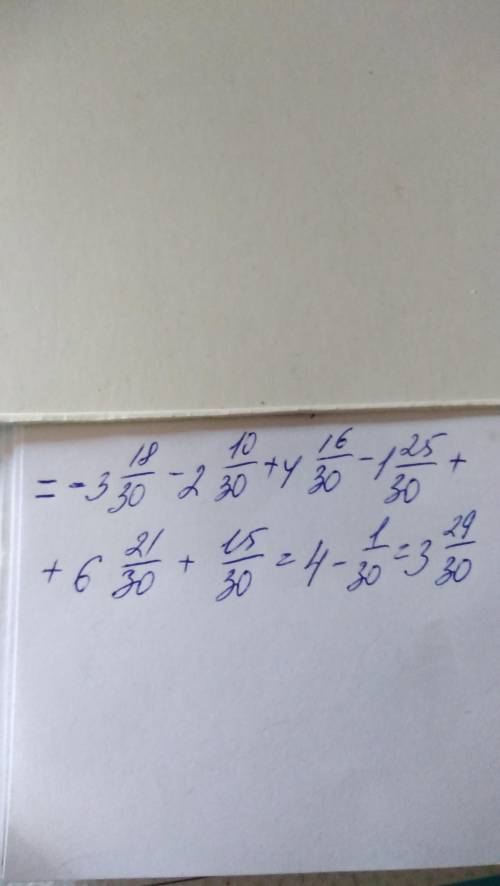 = -3 18/30 - 2 10/30 + 4 16/30 - 1 25/30 +
+ 6 21/30 + 15/30 = 4 - 1/30 = 3 29/30